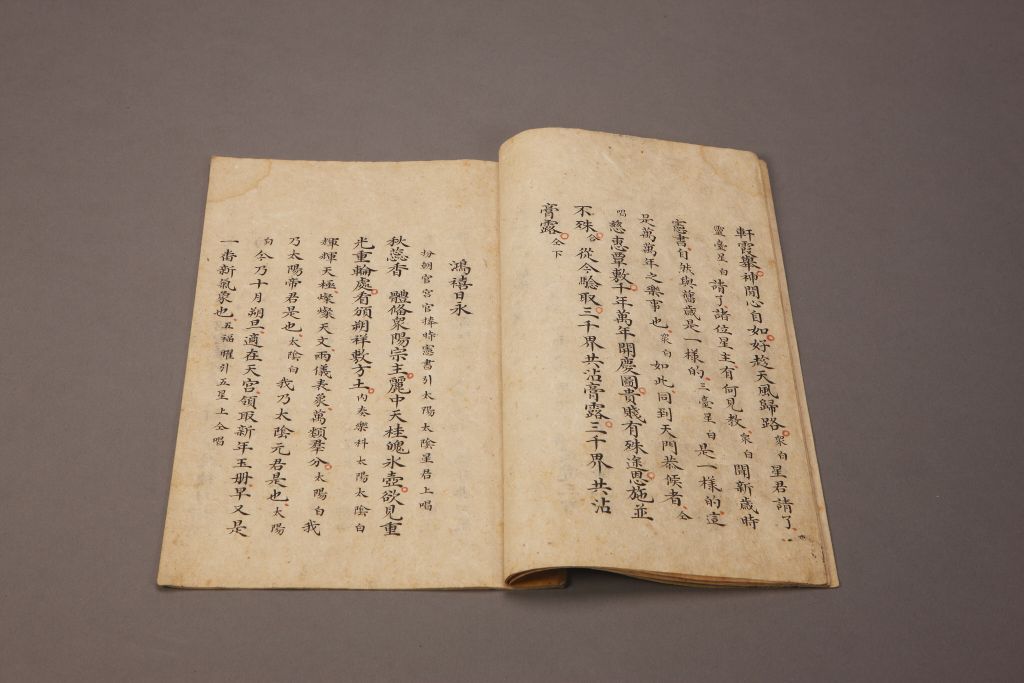 軒霞舉神閒心自如好趁天風歸路衆白星君請了
靈臺星白請了諸位星主有何見教衆白聞新歲時
憲書自然與舊歲是一樣的三臺星白是一樣的這
是萬萬年之樂事也衆白如此同到天門恭候者仝
唱慈惠覃敷千年萬年開慶圖貴賤有殊途恩施並
不殊合從今驗取三千界共沾膏露三千界共沾
膏露仝下
鴻禧日永
扮朔官宮官捧時憲書引太陽太陰星君上唱
秋蕊香 體備衆陽宗主麗中天桂魄氷壺欲見重
光重輪處看頒朔祥敷方土內奏樂科太陽太陰白
輝輝天極燦燦天文兩儀表象萬類羣分太陽白我
乃太陽帝君是也太陰白我乃太陰元君是也太陽
白今乃十月朔旦適在天宮領取新年玉册早又是
一番新氣象也五福曜引五星上仝唱